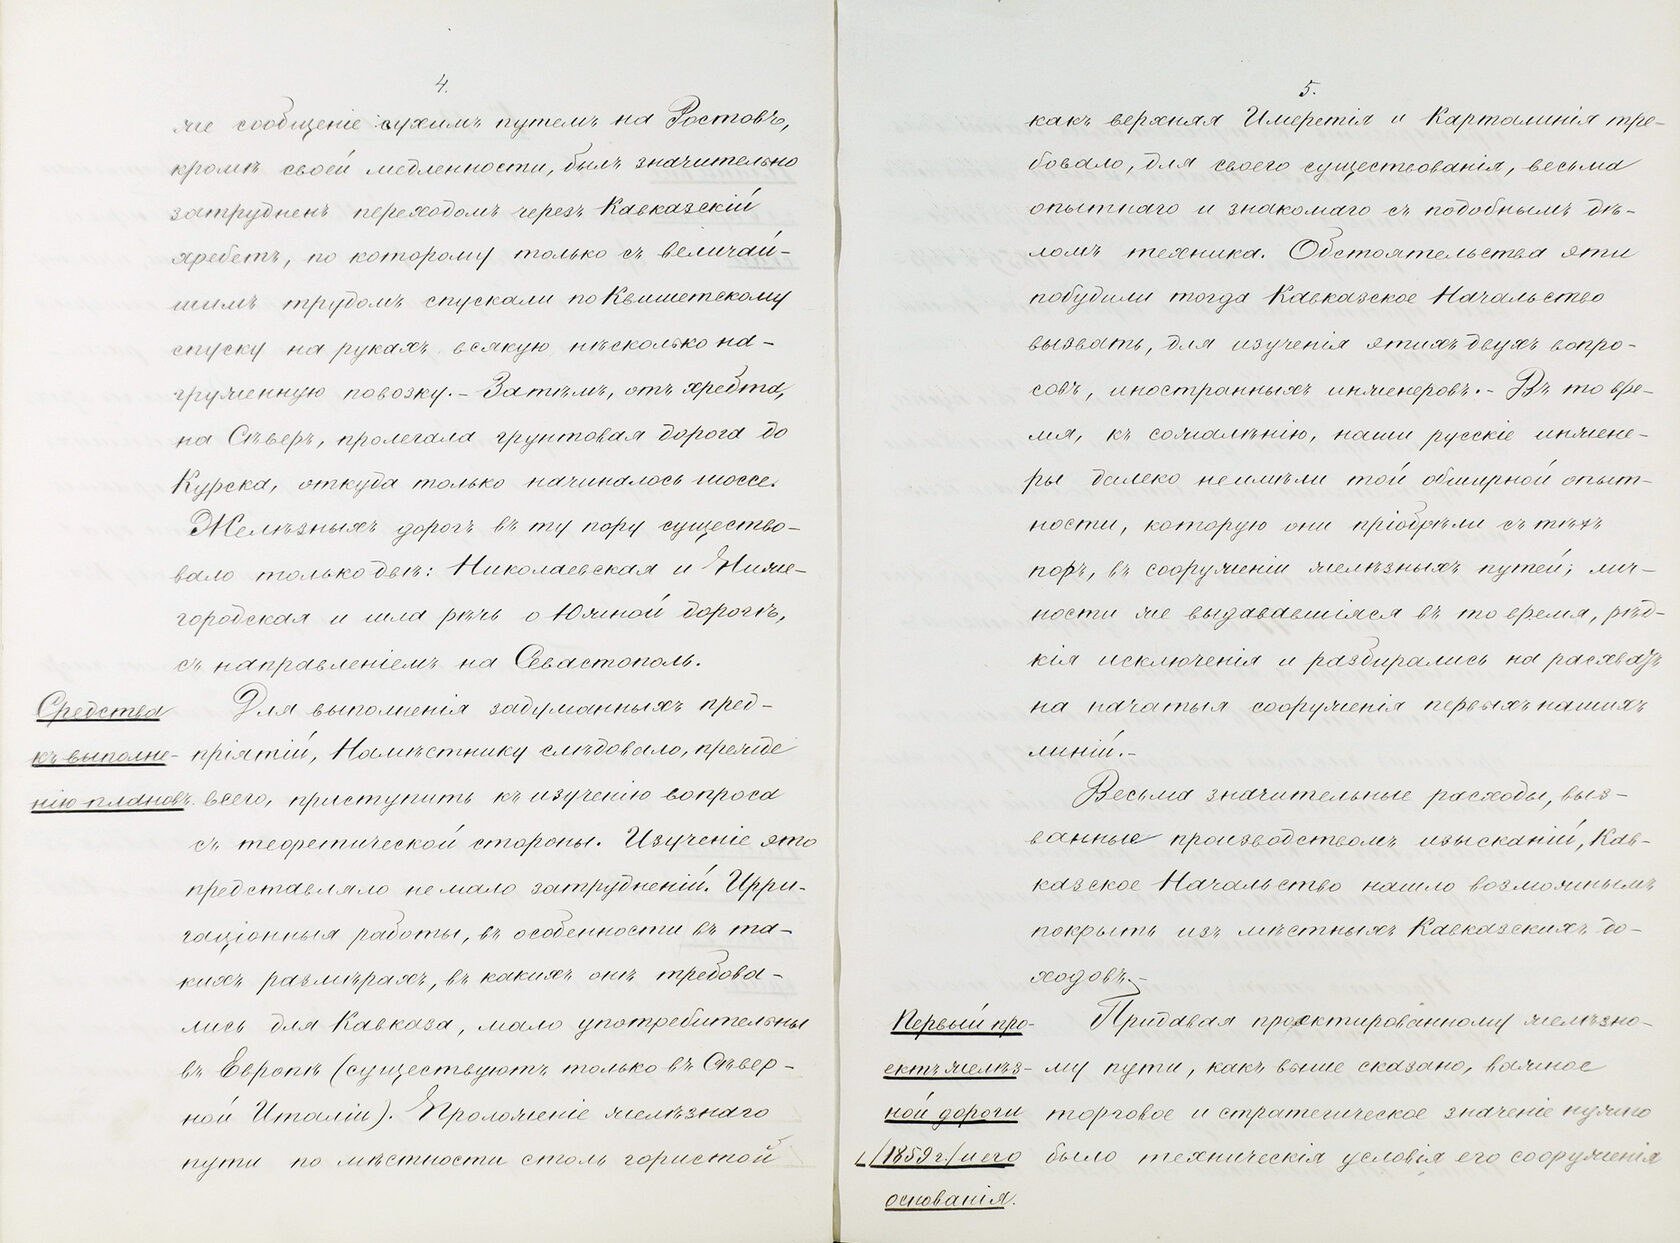 4.
же сообщеніе сухимъ путемъ на Ростовъ,
кромѣ своей медленности, былъ значительно
затрудненъ переходомъ черезъ Кавказскій
хребетъ, по которому только съ величай-
шимъ трудомъ спускали по Квишетскому
спуску на рукахъ всякую нѣсколько на-
груженную повозку.- Затѣмъ, отъ хребта,
на Сѣверъ, пролегала грунтовая дорога до
Курска, откуда только начиналось шоссе.
Желѣзныхъ дорогъ въ ту пору существо-
вало только двѣ: Николаевская и Ниже-
городская и шла рѣчь о Южной дорогѣ,
съ направленіемъ на Севастополь.
Средства
къ выполне-
нію плановъ.
Для выполненія задуманныхъ пред-
пріятій, Намѣстнику слѣдовало, прежде
всего, приступить къ изученію вопроса
съ теоретической стороны. Изученіе это
представляло не мало затрудненій. Ирри-
гаціонныя работы, въ особенности въ та-
кихъ размѣрахъ, въ какихъ онѣ требова-
лись для Кавказа, мало употребительны
въ Европѣ (существуютъ только въ Сѣвер-
ной Италіи). Проложеніе желѣзнаго
пути по мѣстности столь гористой
5.
какъ верхняя Имеретія и Карталинія тре-
бовало, для своего существованія, весьма
опытнаго и знакомаго съ подобнымъ дѣ-
ломъ техника. Обстоятельства эти
побудили тогда Кавказское Начальство
вызвать, для изученія этихъ двухъ вопро-
совъ, иностранныхъ инженеровъ.- Въ то вре-
мя, къ сожалѣнію, наши русскіе инжене-
ры далеко не имѣли той обширной опыт-
ности, которую они пріобрѣли съ тѣхъ
поръ, въ сооруженіи желѣзныхъ путей; лич-
ности же выдававшіяся въ то время, рѣд-
кія исключенія и разбирались на расхватъ
на начатыя сооруженія первыхъ нашихъ
линій.-
Весьма значительные расходы, выз-
ванные производствомъ изысканій, Кав-
казское Начальство нашло возможнымъ
покрыть изъ мѣстныхъ Кавказскихъ до-
ходовъ.-
Первый про-
ектъ желѣз-
ной дороги
/1859 г./ и его
основанія.
Придавая проектированному желѣзно-
му пути, какъ выше сказано, важное
торговое и стратегическое значеніе нужно
было техническія условія его сооруженія